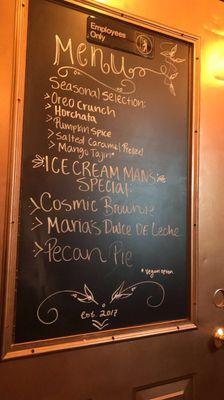 Employees
Only
Menu
Seasonal Selection:
Oreo Crunch
Horchata
Pumpkin Spice
Salted Caramel Pretzel
Mango Tajin*
ICE CREAM MANS
SPECIAL:
Cosmic Brownie
Maria's Dulce De Leche
Pecan Pie
*vegan option
est. 2017